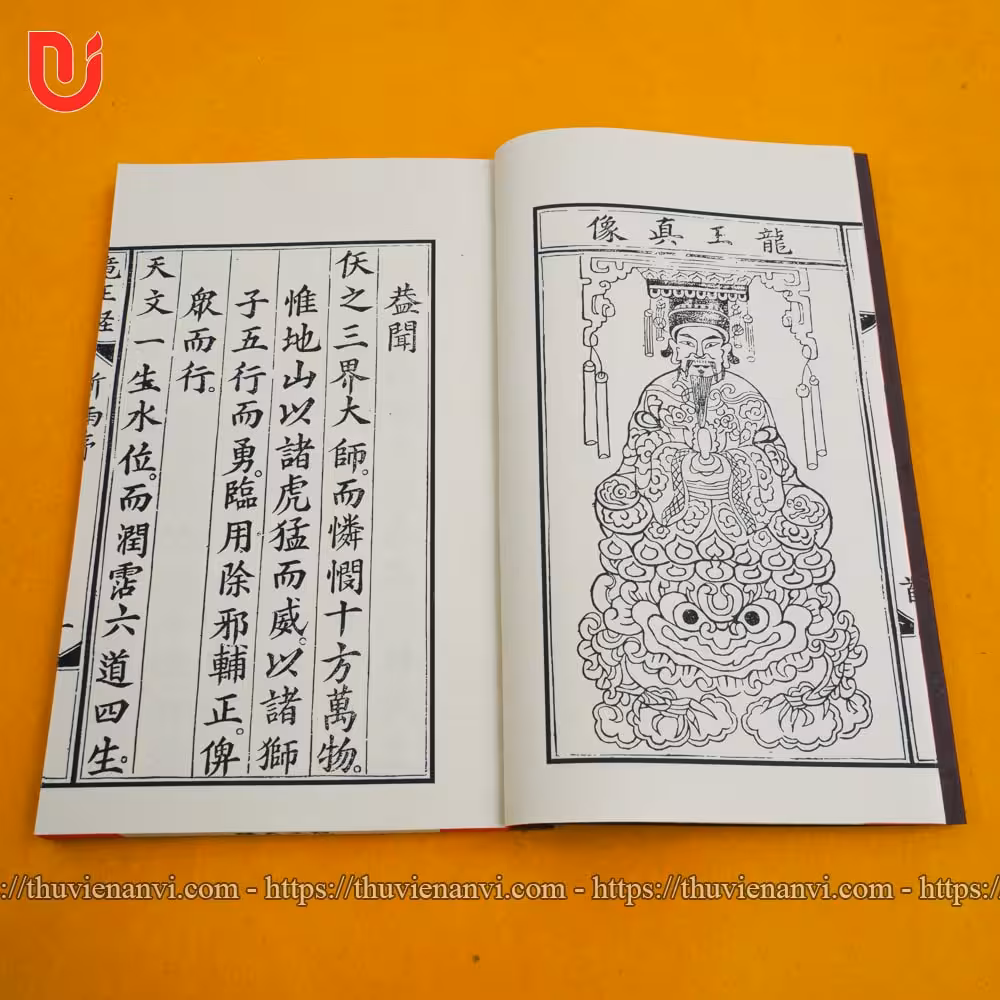 龍王真像
葢聞
仸之三界大師。而憐憫十方萬物。
惟地山以諸虎猛而威。以諸獅
子五行而勇。臨用除邪輔正。俾
眾而行。
天文一生水位。而潤霑六道四生。
://thuvienanvi.com - https://thuvienanvi.com - https://thuvienanvi.com - https